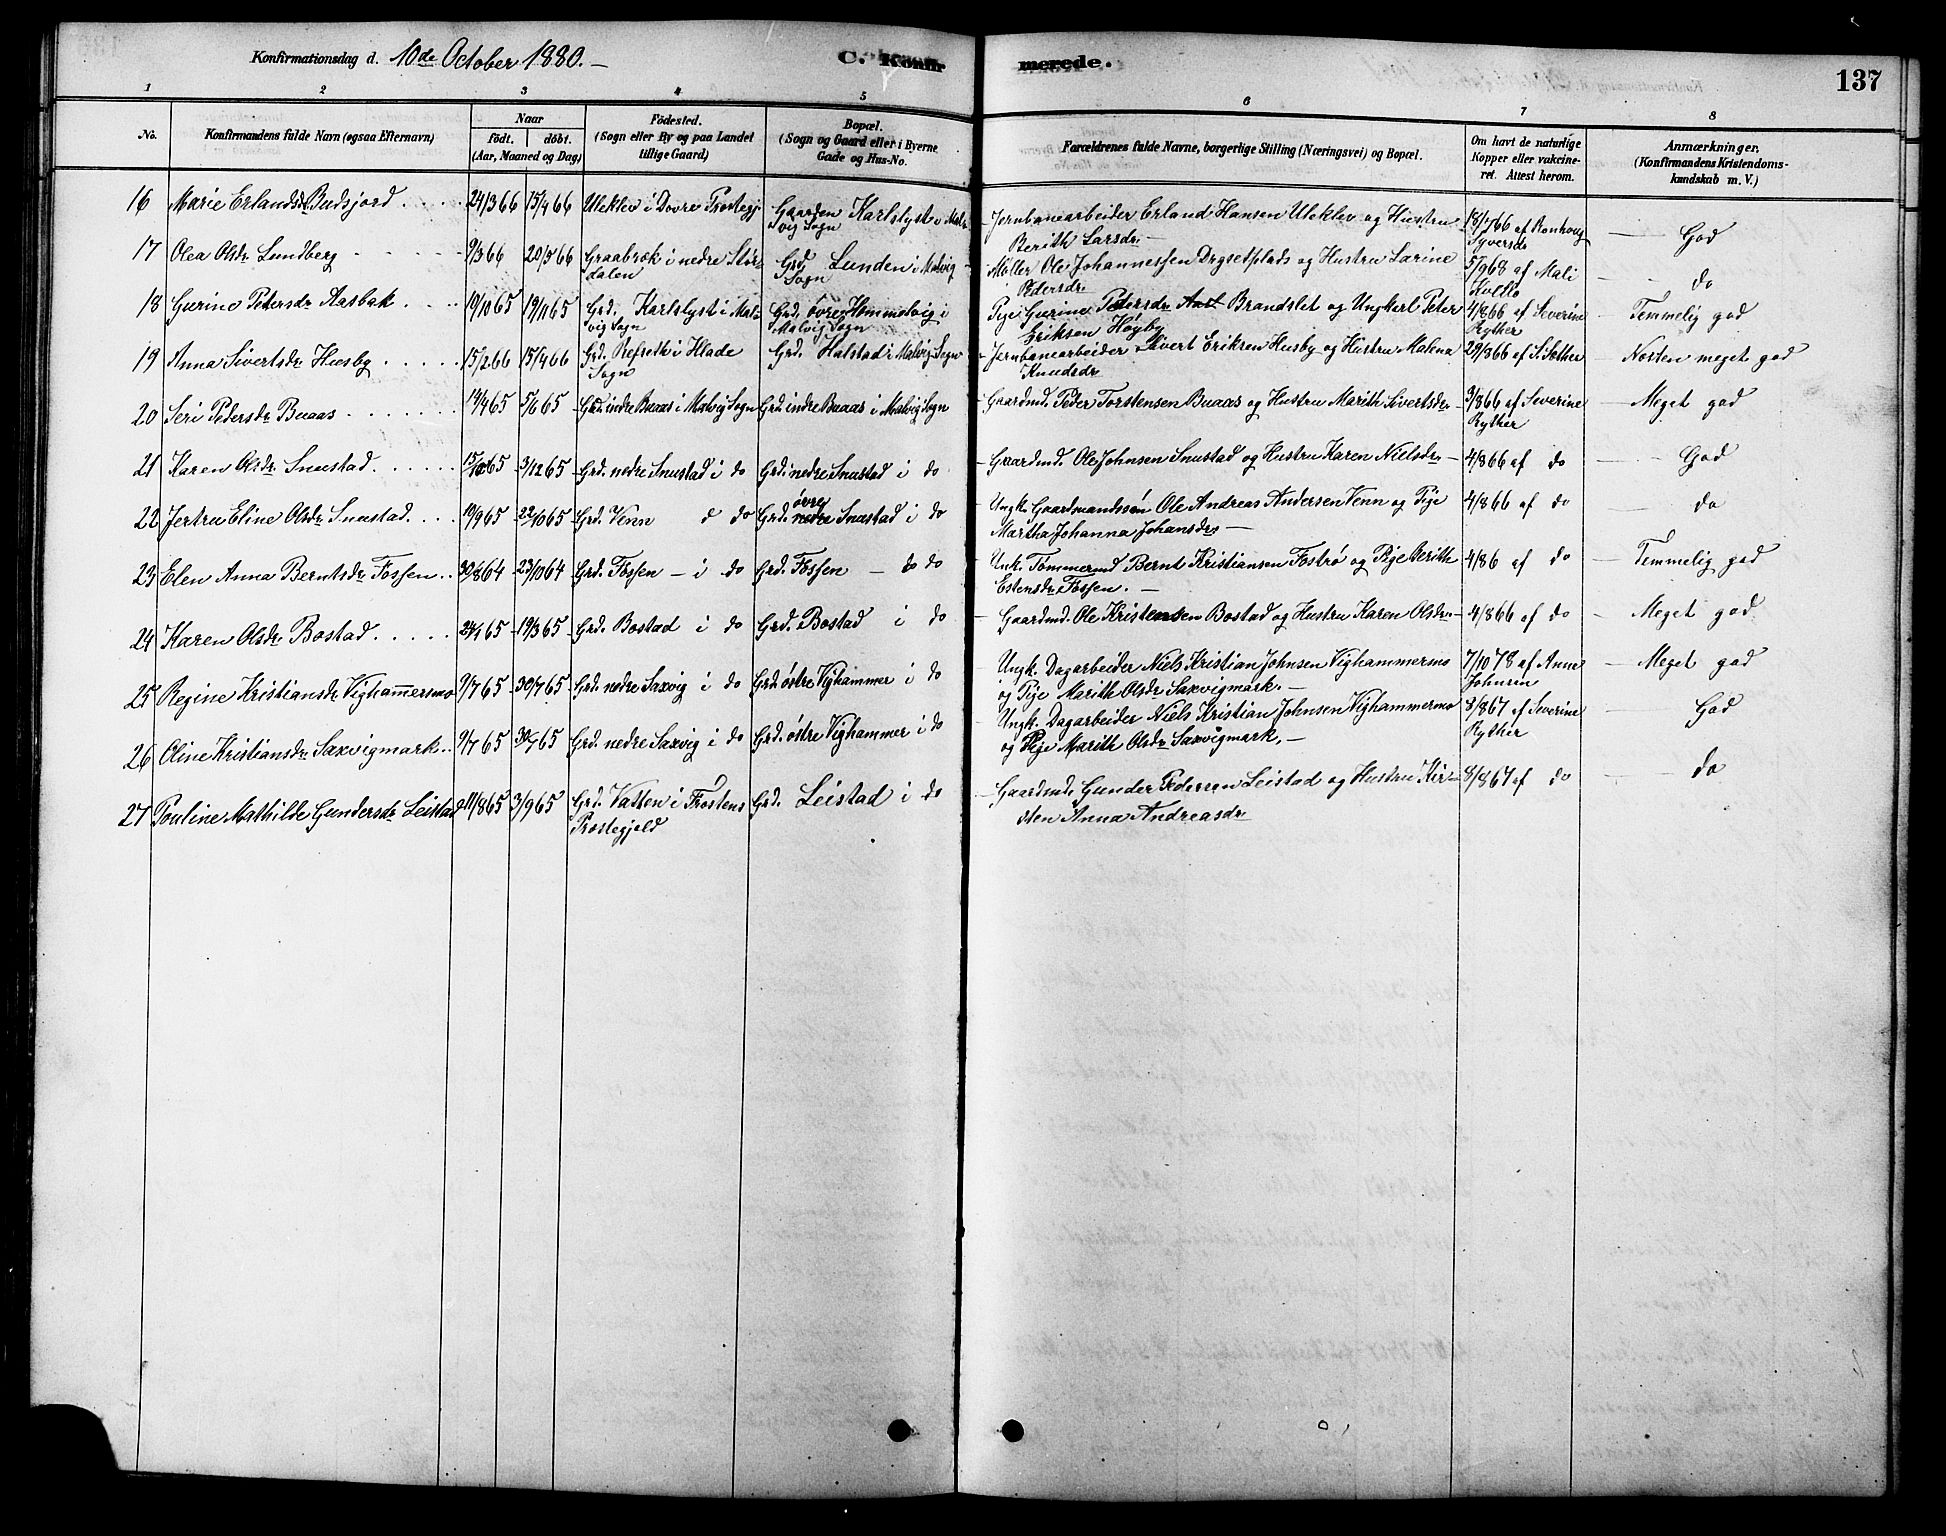 Konfirmationsdag d. 10de October 1880.
C. Konfir merede. 137
1 2 3 4 5 6 7 8
No. Konfirmandens fulde Navn (ogsaa Efternavn) Naar født. døbt. (Aar, Maaned og Dag) Fødested. (Sogn eller By og paa Landet tillige Gaard) Bopæl. (Sogn og Gaard eller i Byerne Gade og Hus-No. Forældrenes fulde Navne, borgerlige Stilling (Næringsvei) og Bopæl. Om havt de naturlige Kopper eller vakcineret. Attest herom. Anmærkninger. (Konfirmandens Kristendomskundskab m. V.)
16 Marie Erlandsdr Budsjord 24/3 66 15/4 66 Uleklev i Dovre Prostegj. Gaarden Karlslyst i Malvig Sogn Jernbanearbeider Erland Hansen Uleklev og Hustru Berith Larsdr. 18/7 66 af Ronhoug Syversdr God
17 Olea Olsdr Lundberg 9/3 66 20/5 66 Graabrok i nedre Stördalen Grd. Lunden i Malvig Sogn Møller Ole Johannessen Drgsetplads og Hustru Larine Pedersdr 5/9 68 af Mali Kollo do
18 Gurine Petersdr Aasbak 10/10 65 19/11 65 Grd. Karlslyst i Malvig Sogn Grd. övre Hommelvig i Malvig Sogn Pige Gurine Petersdr Aast Brandslet og Ungkarl Peter Eriksen Høyby 4/8 66 af Severine Ryther Temmelig god
19 Anna Sivertsdr Husby 15/2 66 15/4 66 Grd. Refseth i Hlade Sogn Grd. Halstad i Malvig Sogn Jernbanearbeider Sivert Eriksen Husby og Hustru Malena Knudsdr 29/8 66 af S. Sother Nosten meget god
20 Seri Pedersdr Buaas 14/4 65 5/6 65 Grd. indre Buaas i Malvig Sogn Grd. indre Buaas i Malvig Sogn Gaardmd. Peder Torstensen Buaas og Hustru Marith Sivertsdr 3/8 66 af Severine Ryther Meget god
21 Karen Olsdr Snustad 15/10 65 3/12 65 Grd. nedre Snustad i do Grd. nedre Snustad i do Gaardmd. Ole Johnsen Snustad og Hustru Karen Nielsdr 4/8 66 af do God
22 Jertru Eline Olsdr Snustad 10/9 65 22/10 65 Grd. Venn d do Grd. övre nedre Snustad i do Ungk. Gaardmandssön Ole Andreas Andersen Venn og Pige Martha Johanna Johansdr 4/8 66 af do do
23 Elen Anna Berntsdr Fossen 30/8 64 23/10 64 Grd. Fossen i do Grd. Fossen do do Unk. Tömmermd Bernt Kristiansen Fostrø og Pige Berith Estensdr Fossen. 4/86 af do Temmelig god
24 Karen Olsdr Bostad 24/1 65 19/3 65 Grd. Bostad i do Grd. Bostad i do Gaardmd. Ole Kristensen Bostad og Hustru Karen Olsdr 4/8 66 af do Meget god
25 Regine Kristiansdr Vighammersmo 9/7 65 30/7 65 Grd. nedre Saxvig i do Grd. østre Vighammer i do Ungk. Dagarbeider Niels Kristian Johnsen Vighammermo og Pige Marith Olsdr Saxvigmark. 7/10 78 af Anne Johnsen Meget god
26 Oline Kristiansdr Saxvigmark 9/7 65 30/7 65 Grd. nedre Saxvig i do Grd. østre Vighammer i do Ungk. Dagarbeider Niels Kristian Johnsen Vighammermo og Pige Marith Olsdr Saxvigmark. 8/8 67 af Severine Ryther God
27 Pouline Mathilde Gundersdr Leistad 11/8 65 3/9 65 Grd. Vatten i Frostens Prostegjeld Grd. Leistad i do Gaardmd. Gunder Pedersen Leistad og Hustru Kirsten Anna Andreasdr 8/8 67 af do do